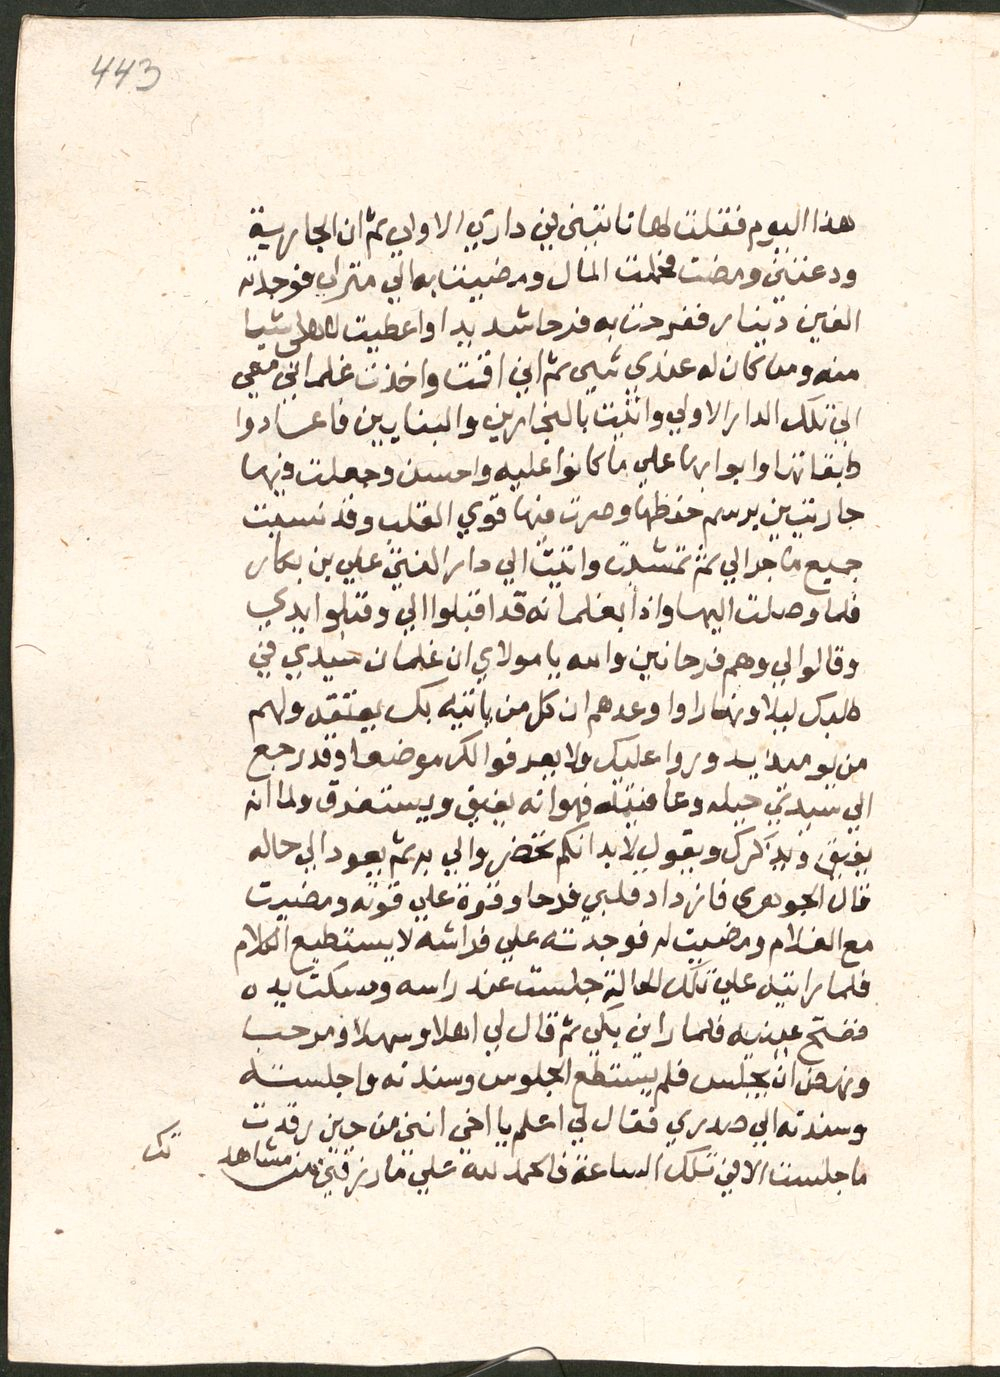 443
هذا اليوم فقلت لها تاتيني في داري الاولي ثم ان الجارية
ودعتني ومضت فحملت المال ومضيت به الي منزلي فوجدته
الفين دينار ففرحت به فرحا شديدا واعطيت لاهلي شيا
منه ومن كان له عندي شي ثم اني اقمت واخذت غلماني معي
الي تلك الدار الاولي واتيت بالنجارين والبنايين فاعادوا
طبقاتها وابوابها علي ما كانوا عليه واحسن وجعلت فيها
جاريتين برسم حفظها وصرت فيها قوي القلب وقد نسيت
جميع ما جرالي ثم تمشيت واتيت الي دار الفتي علي بن بكار
فلما وصلت اليها واذا بغلمانه قد اقبلوا الي وقبلوا ايدي
وقالوا لي وهم فرحانين والله يا مولاي ان غلمان سيدي في
طلبك ليلا ونهارا واوعدهم ان كل من ياتيه بك يعتقه ولهم
من يومين يدوروا عليك ولا يعرفوا لك موضعا وقد رجع
الي سيدي حيله وعافيته فهو انه يفيق ويستغرق ولما انه
يفيق يذكرك ويقول لابد انكم تحضروا لي به ثم يعود الي حاله
قال الجوهري فازداد قلبي فرحا وقوة علي قوته ومضيت
مع الغلام ومضيت له فوجدته علي فراشه لا يستطيع الكلام
فلما رايته علي تلك الحالة جلست عند راسه ومسكت يده
ففتح عينيه فلما راني بكي ثم قال لي اهلا وسهلا ومرحبا
ونهض ان يجلس فلم يستطع الجلوس وسندته واجلسته
وسندته الي صدري فقال لي اعلم يا اخي انني من حين رقدت
ما جلست الا في تلك الساعة فالحمد لله علي ما رزقني من مشاهد
تك